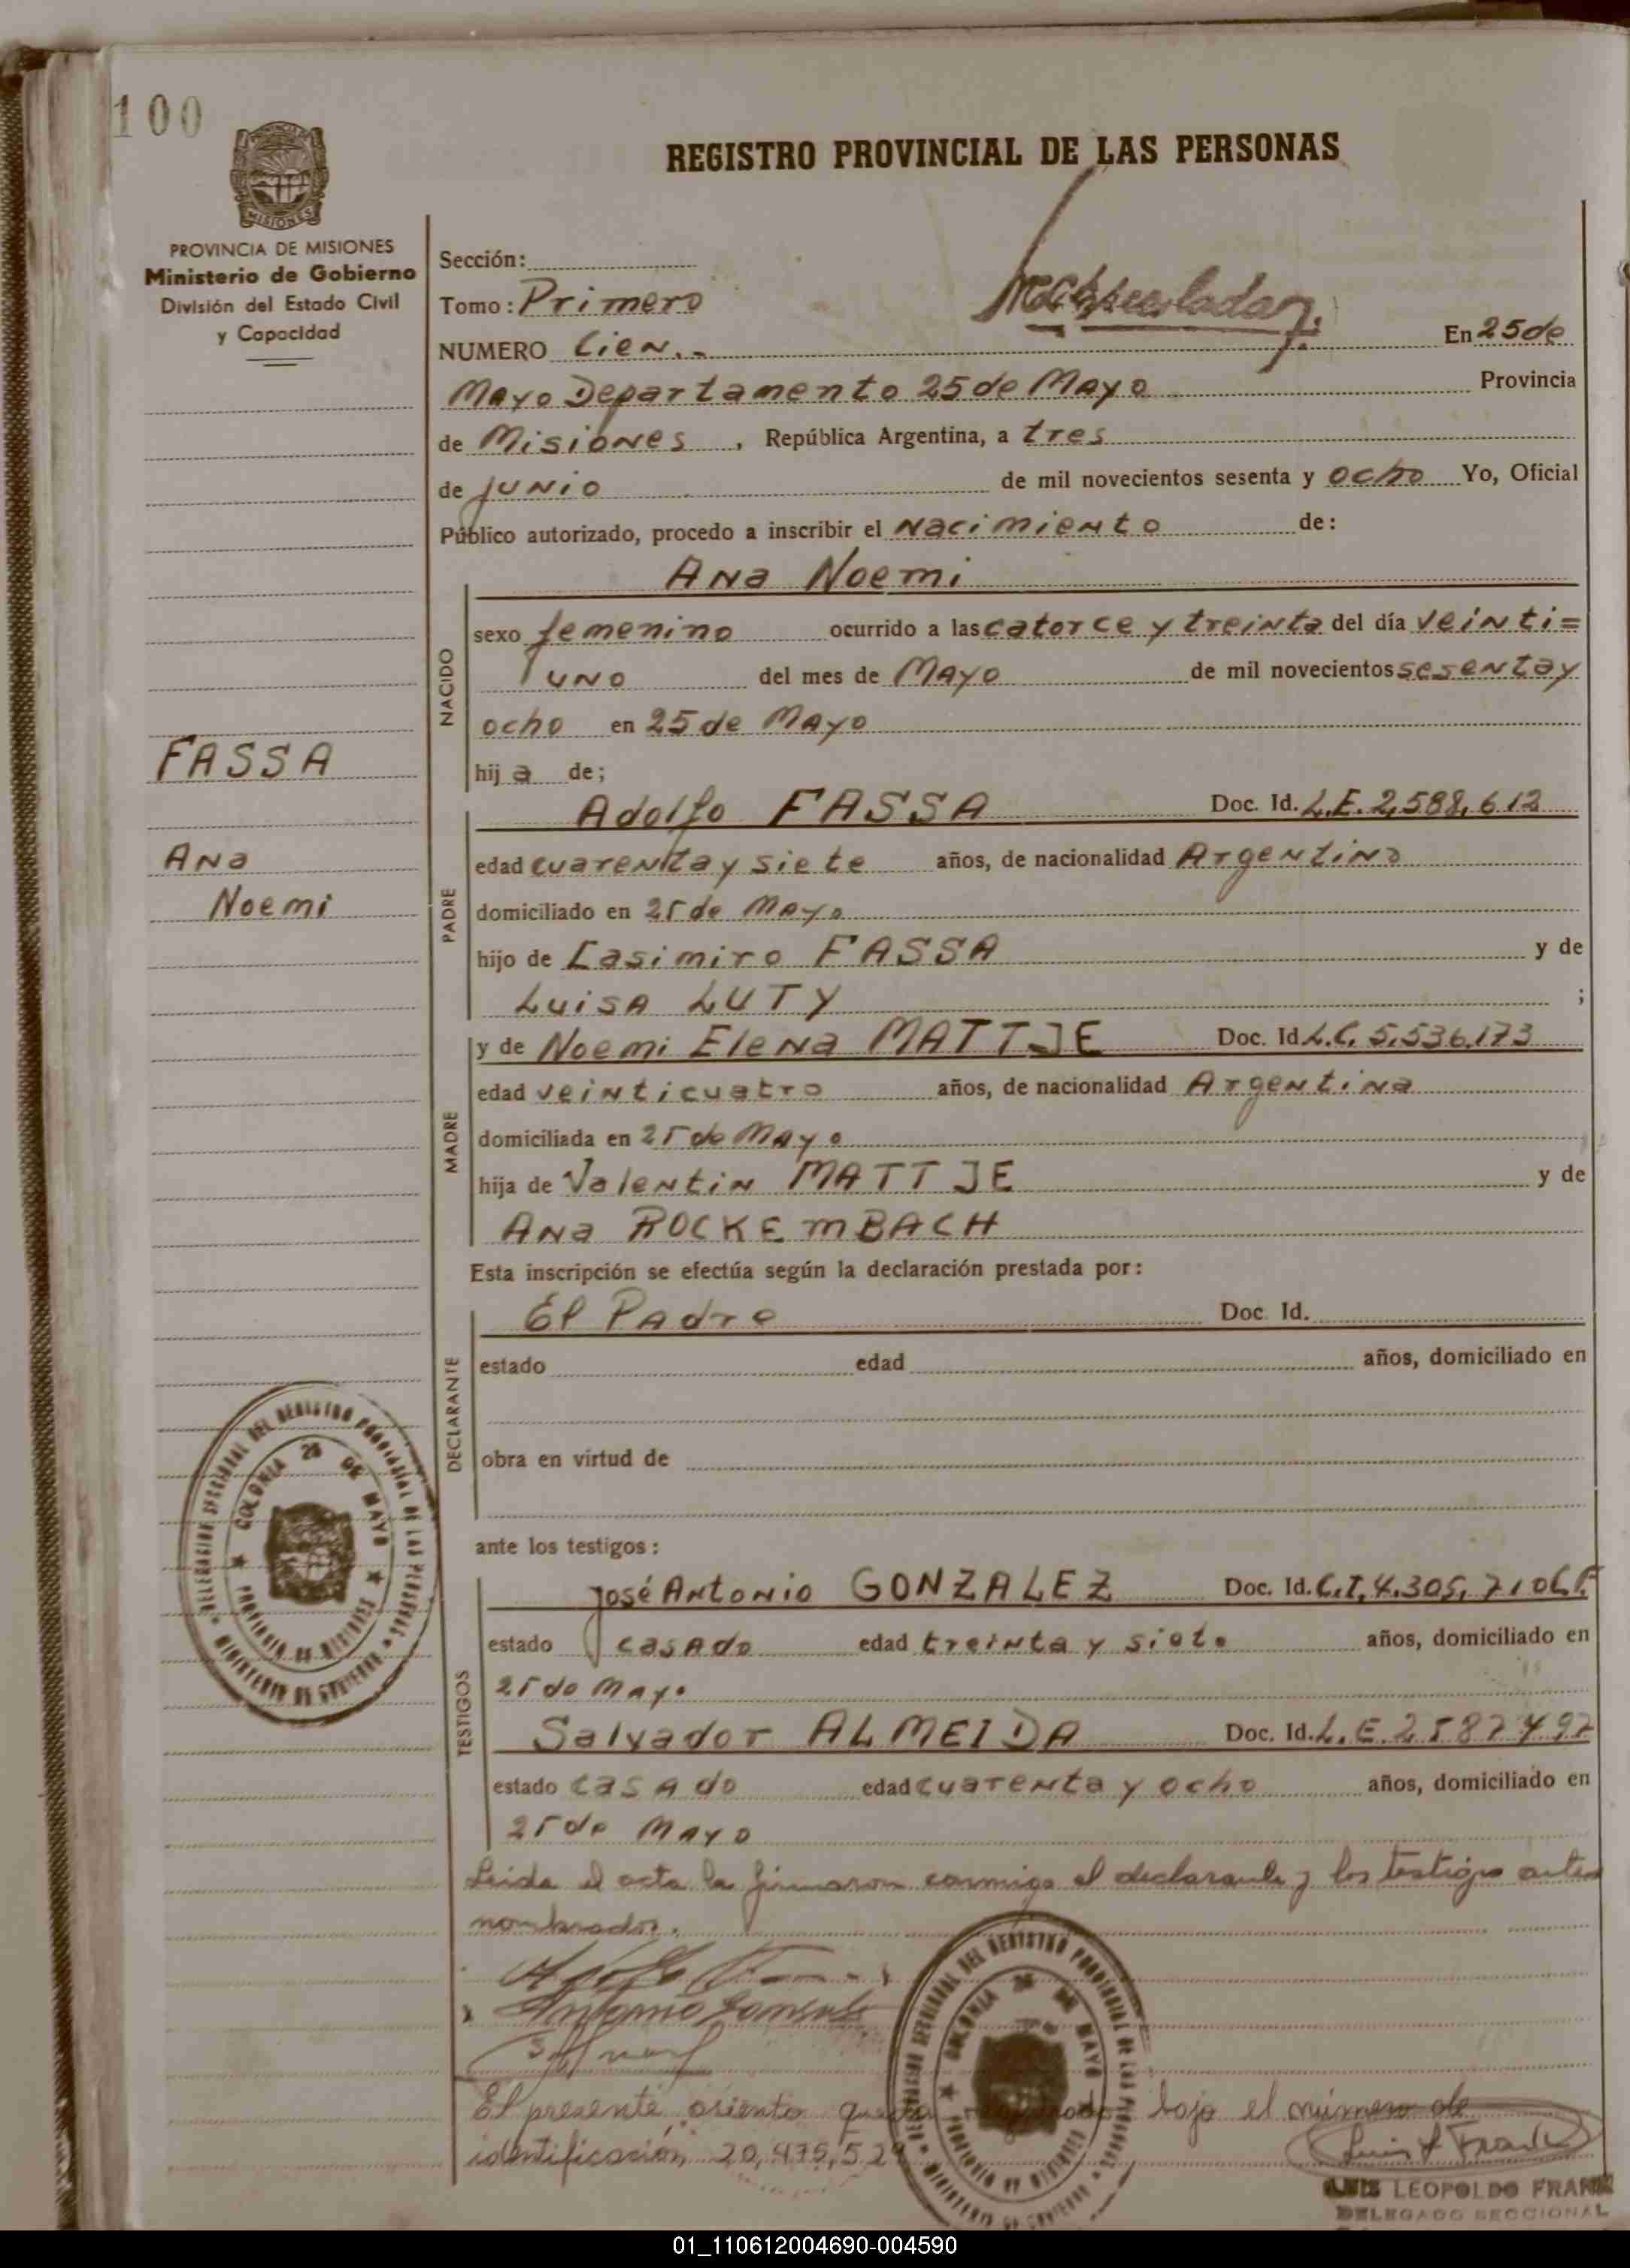 100
MISIONES
PROVINCIA DE MISIONES
Ministerio de Gobierno
División del Estado Civil
y Capacidad
REGISTRO PROVINCIAL DE LAS PERSONAS
Sección:
Tomo: Primero
NUMERO Cien.- En 25 de
Mayo Departamento 25 de Mayo Provincia
de Misiones, República Argentina, a tres
de junio de mil novecientos sesenta y ocho Yo, Oficial
Público autorizado, procedo a inscribir el Nacimiento de:
NACIDO
Ana Noemi
sexo femenino ocurrido a las catorce y treinta del día veinti=
uno del mes de Mayo de mil novecientos sesenta y
ocho en 25 de Mayo
hija de;
FASSA
Ana
Noemi
PADRE
Adolfo FASSA Doc. Id. L.E. 2,588,612
edad cuarenta y siete años, de nacionalidad Argentino
domiciliado en 25 de Mayo
hijo de Casimiro FASSA y de
Luisa LUTY ;
MADRE
y de Noemi Elena MATTJE Doc. Id L.C. 5,536,173
edad veinticuatro años, de nacionalidad Argentina
domiciliada en 25 de Mayo
hija de Valentin MATTJE y de
Ana ROCKEMBACH
Esta inscripción se efectúa según la declaración prestada por:
DECLARANTE
El Padre Doc. Id.
estado edad años, domiciliado en
obra en virtud de
DELEGACION SECCIONAL DEL REGISTRO PROVINCIAL DE LAS PERSONAS
MINISTERIO DE GOBIERNO
COLONIA 25 DE MAYO
PROVINCIA DE MISIONES
ante los testigos:
TESTIGOS
José Antonio GONZALEZ Doc. Id. C.I, 4.305,710
estado casado edad treinta y siete años, domiciliado en
25 de Mayo
Salvador ALMEIDA Doc. Id. L.E. 2587497
estado casado edad cuarenta y ocho años, domiciliado en
25 de Mayo
Leida el acta la firmaron conmigo el declarante y los testigos antes
nombrados.
El presente asiento queda bajo el número de
identificación 20,475,52
DELEGACION SECCIONAL DEL REGISTRO PROVINCIAL DE LAS PERSONAS
MINISTERIO DE GOBIERNO
COLONIA 25 DE MAYO
PROVINCIA DE MISIONES
LUIS LEOPOLDO FRANK
DELEGADO SECCIONAL
01_110612004690-004590